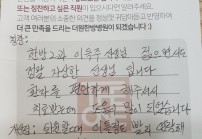 또는 칭찬하고 싶은 직원이 있으시다면 말씀해 주세요.
고객 여러분의 소중한 의견을 정성껏 귀담아듣고 반영하여
더 큰 만족을 드리는 더원한방병원이 되겠습니다 :)
칭찬:
한방 2과 이동주 선생님 젊으면서도
정말 자상한 선생님 입니다
환자를 편안하게 해주셔서
치료받는데 도움이 많이 되었습니다